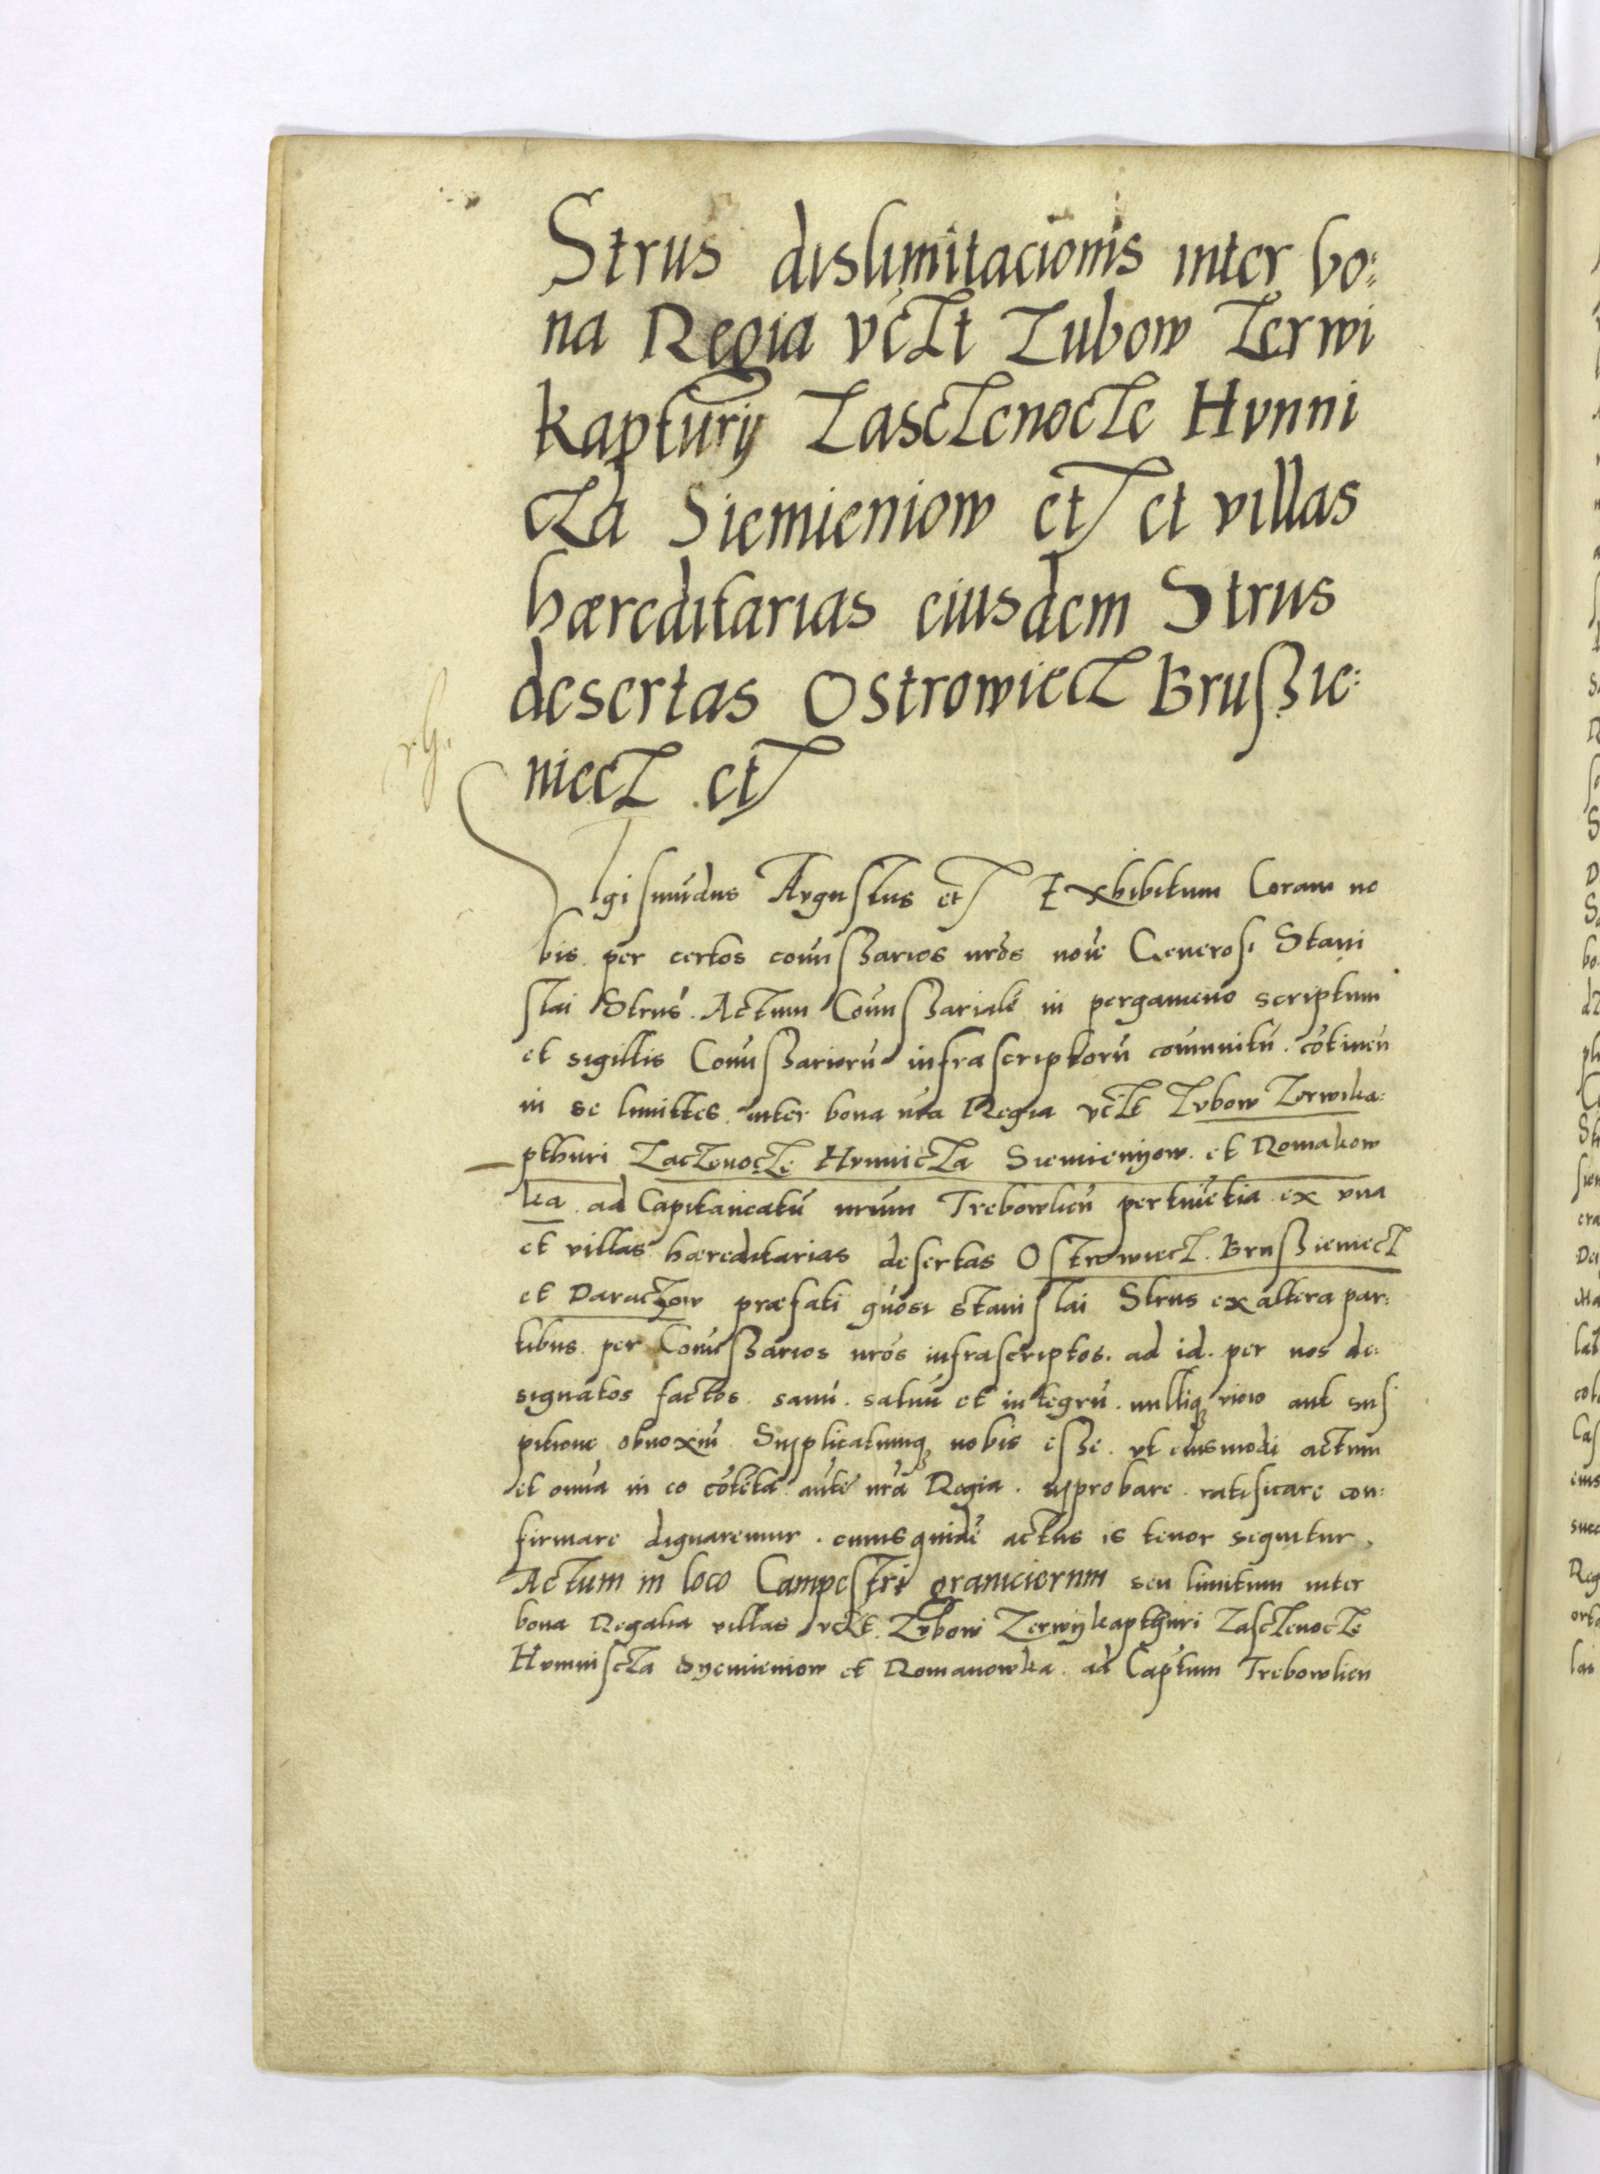 Strus dislimitacionis inter bo:
na Regia vczlt Zubow Zerwi
kapturij Zasczenocze Hvnni
cza Siemieniow etc et villas
hæreditarias eiusdem Strus
desertas Ostrowiecz Brussie:
niecz etc
Sigismūdus Augustus etc Exhibitum Coram no
bis per certos com̄issarios nr̄os noīe Generosi Stani
slai Strus. Actum Com̄issarialē in pergameno scriptum
et sigillis Com̄issariorū infrascriptorū com̄unitū. cōtinen̄
in se limittes inter bona nr̄a Regia vczlt Zvbow Zerwika:
pthuri Zaczenocze Hvnnicza Siemienijow. et Romakow
ka. ad Capitaneatū nrūm Trebowlien̄ pertinētia ex vna
et villas hæreditarias desertas Ostrowiecz. Brussieniecz
et Daraczow præfati gn̄osi Stanislai Strus ex altera par:
tibus per Com̄issarios nr̄os infrascriptos. ad id. per nos de:
signatos factos. sanū. saluū et integrū. nulliq; vicio aut sus
pitione obnoxiū. Supplicatumq; nobis esse. vt eiusmodi actum
et om̄ia in eo cōtēta. aut̄e nr̄a Regia. approbare. ratificare con:
firmare dignaremur. cuius quidē actus is tenor sequitur.
Actum in loco Campestri graniciernm seu limitum inter
bona Regalia villas vczlt. Zvbowi Zerwijkapthuri Zasczenocze
Hvmniscza Syemieniow et Romanowka. ad Captum Trebowlien